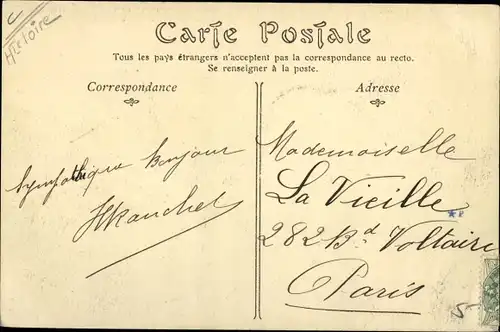 C
Hte Loire
Carte Postale
Tous les pays étrangers n'acceptent pas la correspondance au recto.
Se renseigner à la poste.
Correspondance
Adresse
Sympathique Bonjour
Mademoiselle
La Vieille
282 Bd Voltaire
Paris
5